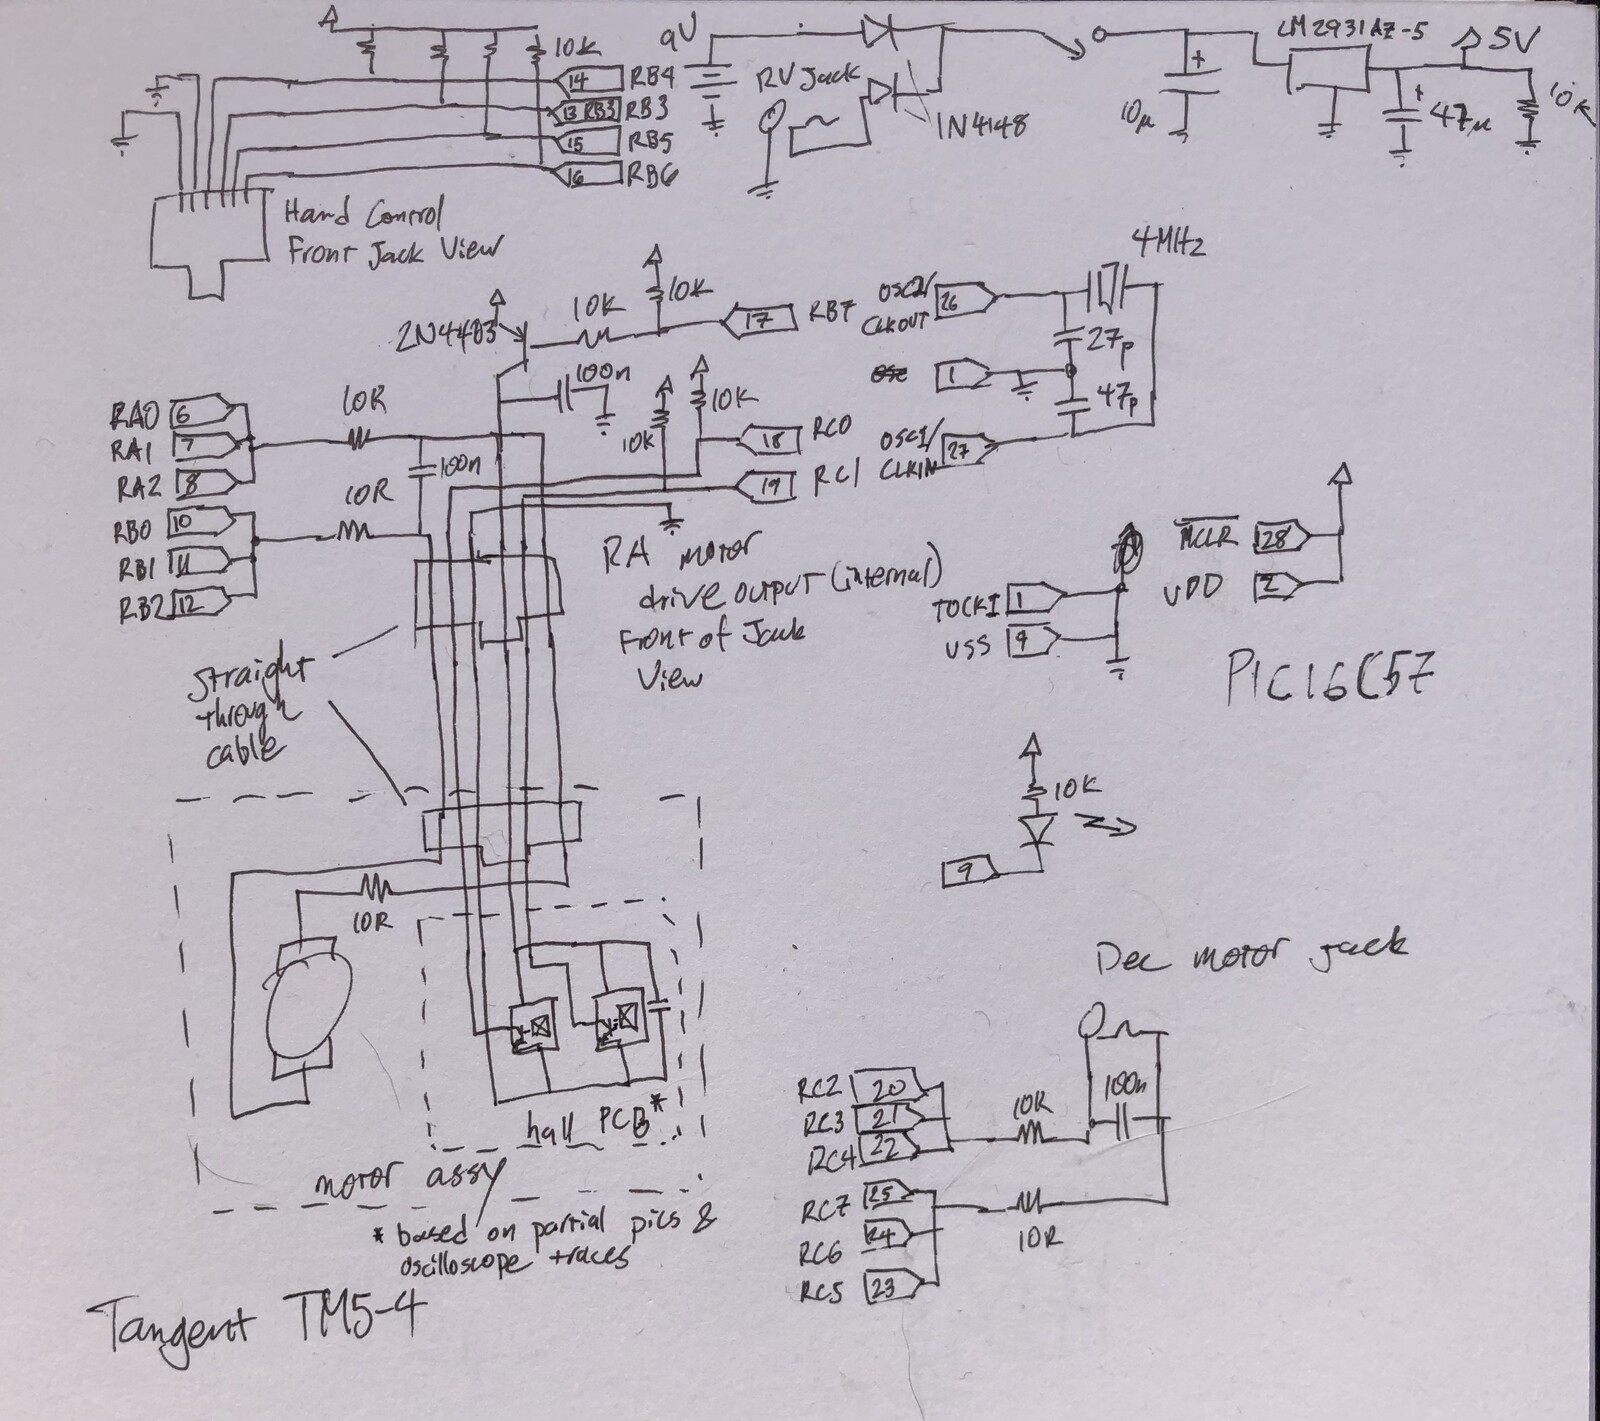 10K
14 RB4
13 RB3 RB3
15 RB5
16 RB6
Hand Control
Front Jack View
9V
RV Jack
1N4148
10µ
LM2931AZ-5
5V
47µ
10K
4MHz
OSC2/
CLKOUT
26
27p
1
47p
OSC1/
CLKIN
27
2N4403
10K
10K
17 RB7
100n
10K
10K
18 RC0
19 RC1
RA0 6
RA1 7
RA2 8
RB0 10
RB1 11
RB2 12
10R
100n
10R
RA motor
drive output (internal)
Front of Jack
View
straight
through
cable
TOCKI 1
VSS 9
MCLR 28
VDD 2
PIC16C57
10K
9
10R
hall PCB*
motor assy
* based on partial pics &
oscilloscope traces
Tangent TM5-4
Dec motor jack
RC2 20
RC3 21
RC4 22
RC7 25
RC6 24
RC5 23
10R
100n
10R